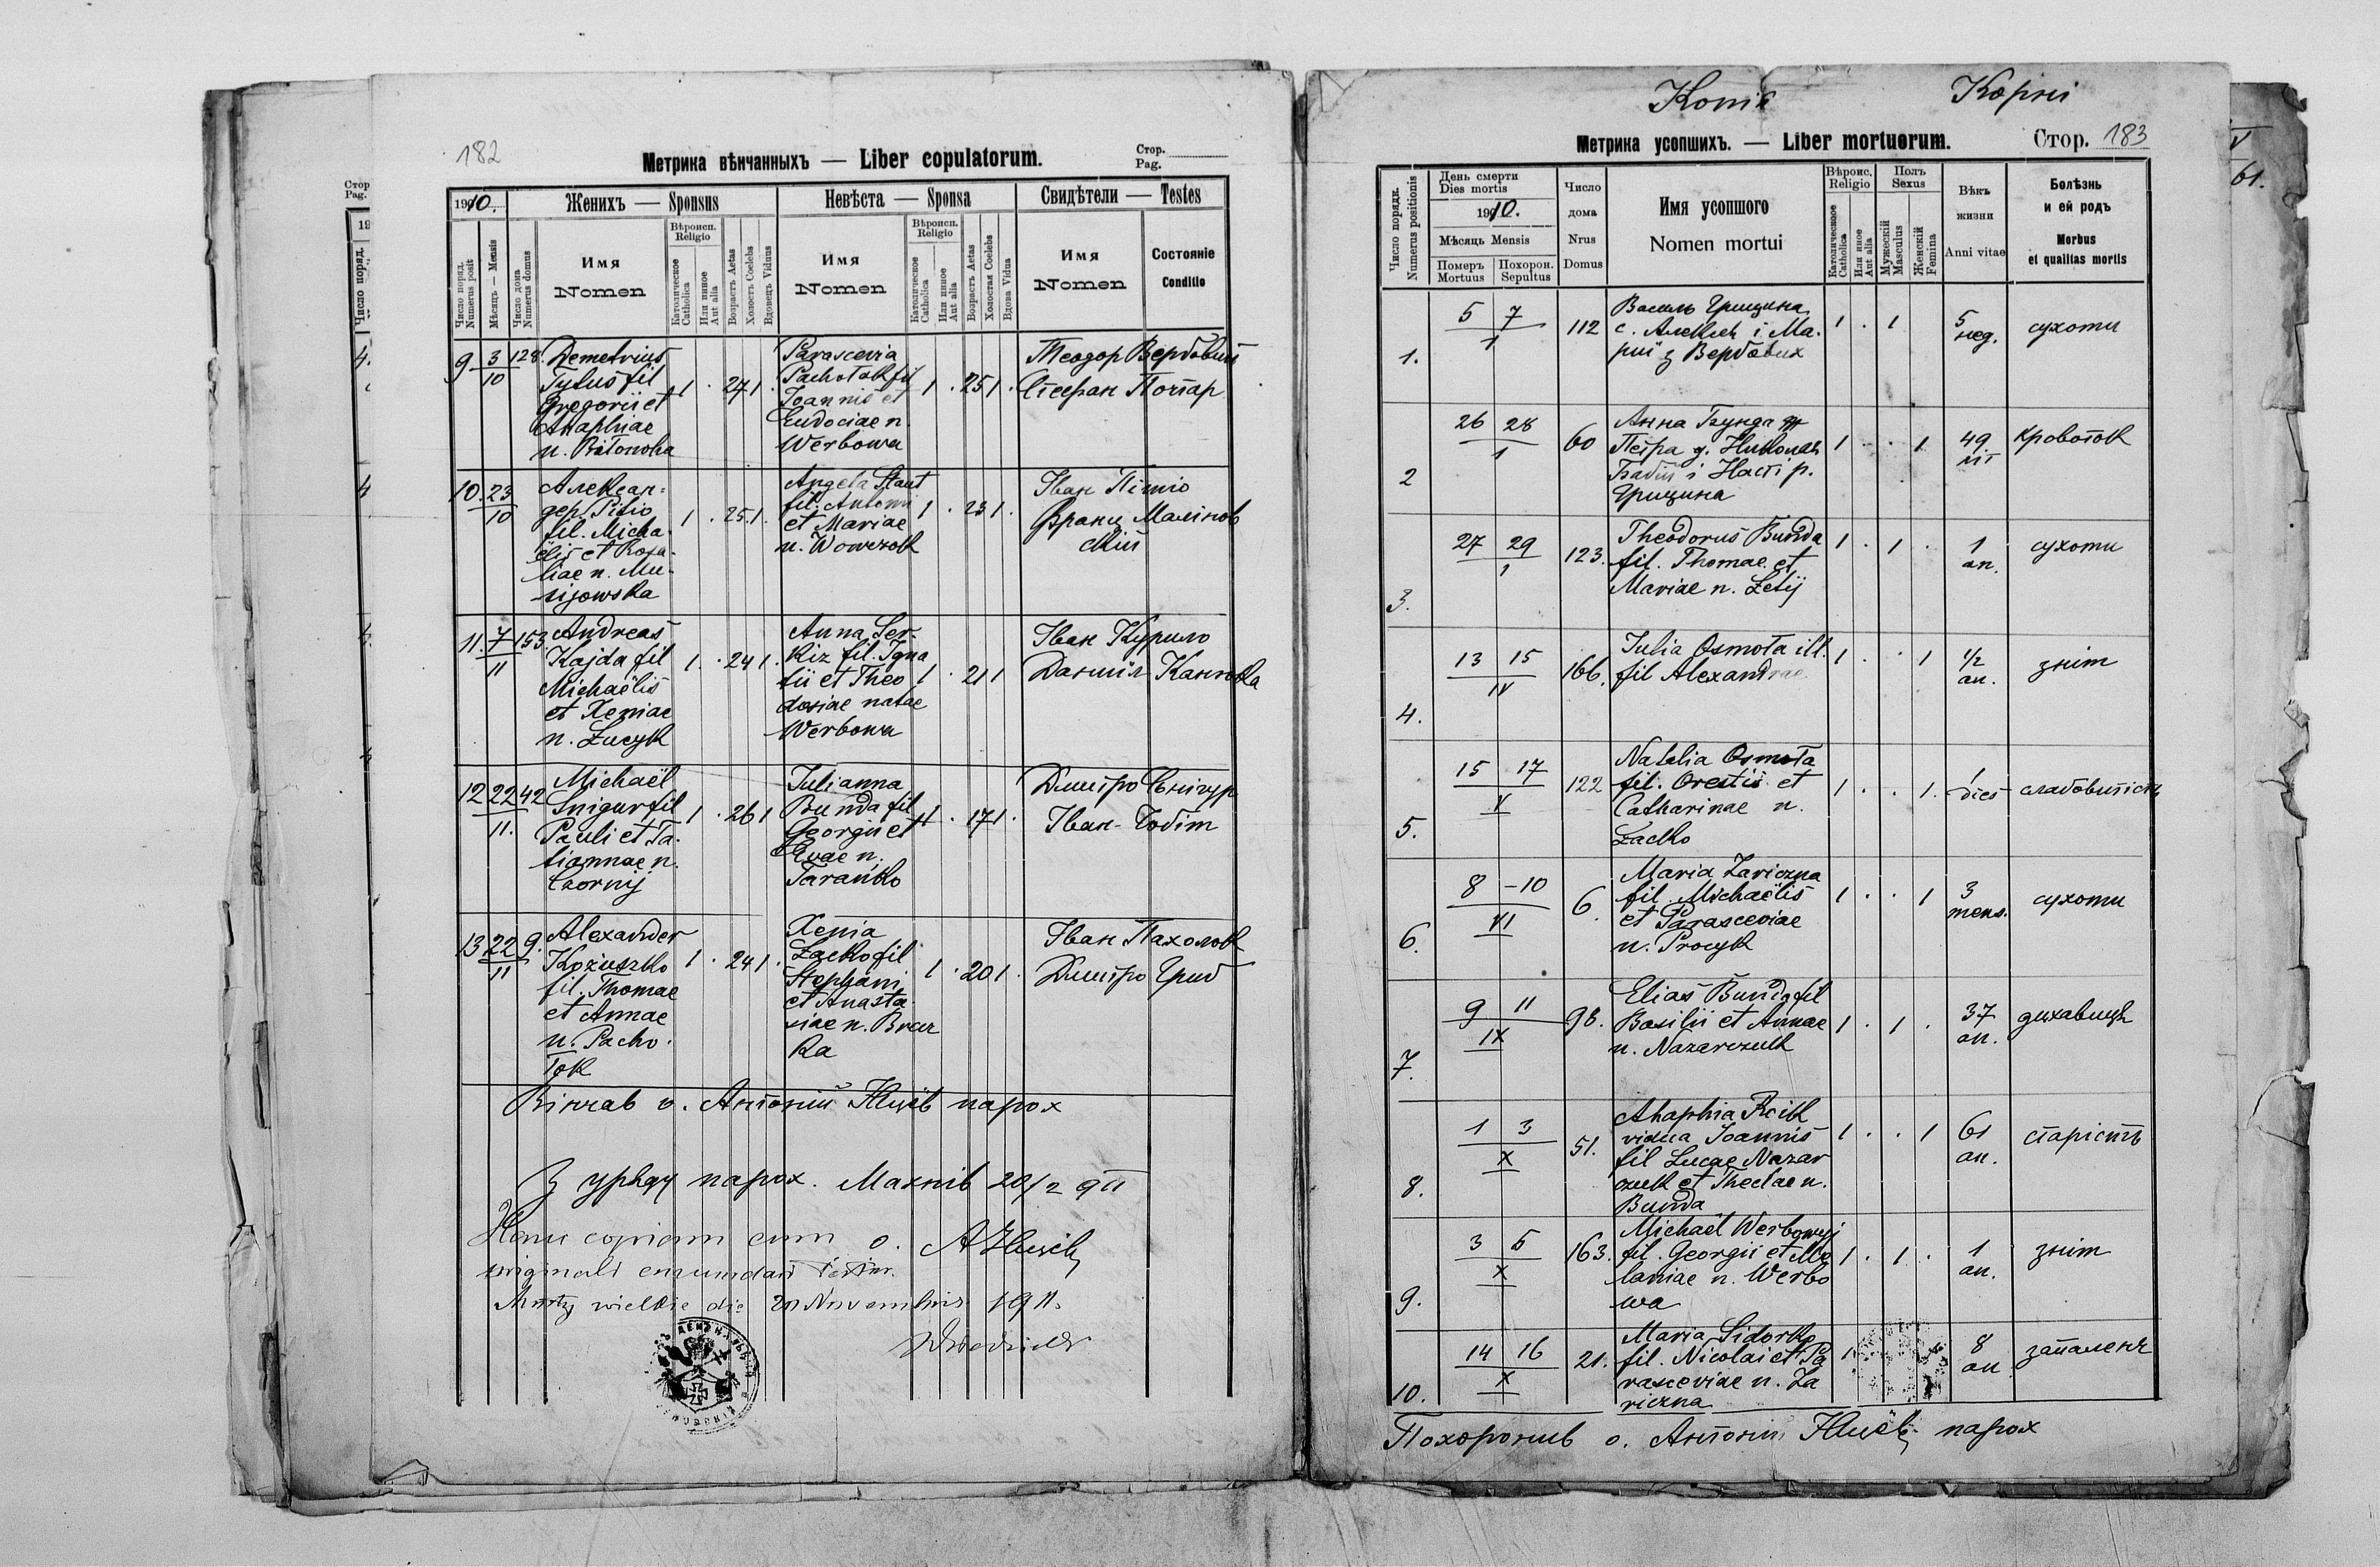 182
Метрика вѣнчанныхъ — Liber copulatorum.
Стор.
Pag.
1910.
Женихъ — Sponsus
Невѣста — Sponsa
Свидѣтели — Testes
Число поряд.
Numerus posit
Мѣсяцъ — Mensis
Число дома
Numerus domus
Имя
Nomen
Вѣроисп.
Religio
Католическое
Catholica
Или иное
Aut alia
Возрастъ Aetas
Холостъ Coelebs
Вдовецъ Viduus
Имя
Nomen
Вѣроисп.
Religio
Католическое
Catholica
Или иное
Aut alia
Возрастъ Aetas
Холостая Coelebs
Вдова Vidua
Имя
Nomen
Состояніе
Conditio
9 3/10 128. Demetrius
Tytus fil
Gregorii et
Ahaphiae
n.
1 . 27 1 .
Parascevia
Pachołok fil
Joannis et
Eudociae n.
Werbowa
1 . 25 1 .
Теодор Вербовий
Стефан
10. 23/10
Александер Pitio
fil. Michaëlis et Rosaliae n. Musijowska
1 . 25 1.
Angela
fil. Antonii
et Mariae
n. Wowczok
1 . 23 1 .
Іван Пітьо
Франц Маліновский
11. 7/11 153.
Andreas
Kajda fil
Michaëlis
et Xeniae
n. Łucyk
1 . 24 1 .
Anna Serkiz fil. Ignatii et Theodosiae natae
Werbowa
1 . 21 1
Іван Курило
Даниїл
12 22/11. 42
Michaël
Snigur fil
Pauli et Tatiannae n.
Czornij
1 . 26 1
Julianna
Bunda fil
Georgii et
Evae n.
Tarańko
1 . 17 1 .
Дмитро Снігур
Іван
13 22/11 9.
Alexander
Kożuszko
fil. Thomae
et Annae
n. Pachołok
1 . 24 1 .
Xenia
Łacko fil
Stephani
et Anastasiae n.
1 . 20 1 .
Іван Пахолок
Дмитро Гриб
Вінчав о. Антоній парох
З уряду парох. Махнів 20/2 911
Hanc copiam cum
originali
Mosty wielkie die 20 Novembris 1911.
Стор. 183
Метрика усопшихъ. — Liber mortuorum.
Число порядк.
Numerus positionis
День смерти
Dies mortis
1910.
Мѣсяцъ Mensis
Померъ
Mortuus
Похорон.
Sepultus
Число
дома
Nrus
Domus
Имя усопшого
Nomen mortui
Вѣроис.
Religio
Католическое
Catholica
Или иное
Aut alia
Полъ
Sexus
Мужескій
Masculus
Женскій
Femina
Вѣкъ
жизни
Anni vitae
Болѣзнь
и ей родъ
Morbus
et qualitas mortis
1. 5 7 / I 112
Василь Грицина
с. Алексея і Марії з Вербових
1 . 1
5 нед.
сухоти
2 26 28 / I 60
Анна Бунда ж
Петра д. Николая
і Насті р.
Грицина
1 . . 1
49 літ
кровоток
3. 27 29 / I 123.
Theodorus Bunda
fil. Thomae et
Mariae n.
1 . 1 .
1 an.
сухоти
4. 13 15 / IV 166.
Julia Osmota ill.
fil Alexandrae
1 . . 1
1/2 an.
зним
5. 15 17 / V 122
Natalia Osmota
fil. Orestis et
Catharinae n.
Łacko
1 . . 1.
1 dies
слабовитість
6. 8 - 10 / VI 6.
Maria Zariczna
fil. Michaëlis
et Parasceviae
n. Procyk
1 . . 1
3 mens.
сухоти
7. 9 11 / IX 98.
Elias Bunda fil
Basilii et Annae
n. Nazarczuk
1 . 1 .
37 an.
дихавиця
8. 1 3 / X 51.
Ahaphia
vidua Joannis
fil Lucae Nazarczuk et Theclae n.
Bunda
1 . . 1
61 an.
старість
9. 3 5 / X 163.
Michaël Werbowyj
fil. Georgii et Melaniae n. Werbowa
1 . 1 .
1 an.
зним
10. 14 16 / X 21.
Maria Sidorko
fil. Nicolai et Parasceviae n. Zariczna
1
8 an
запаленя
Похоронив о. Антоній парох